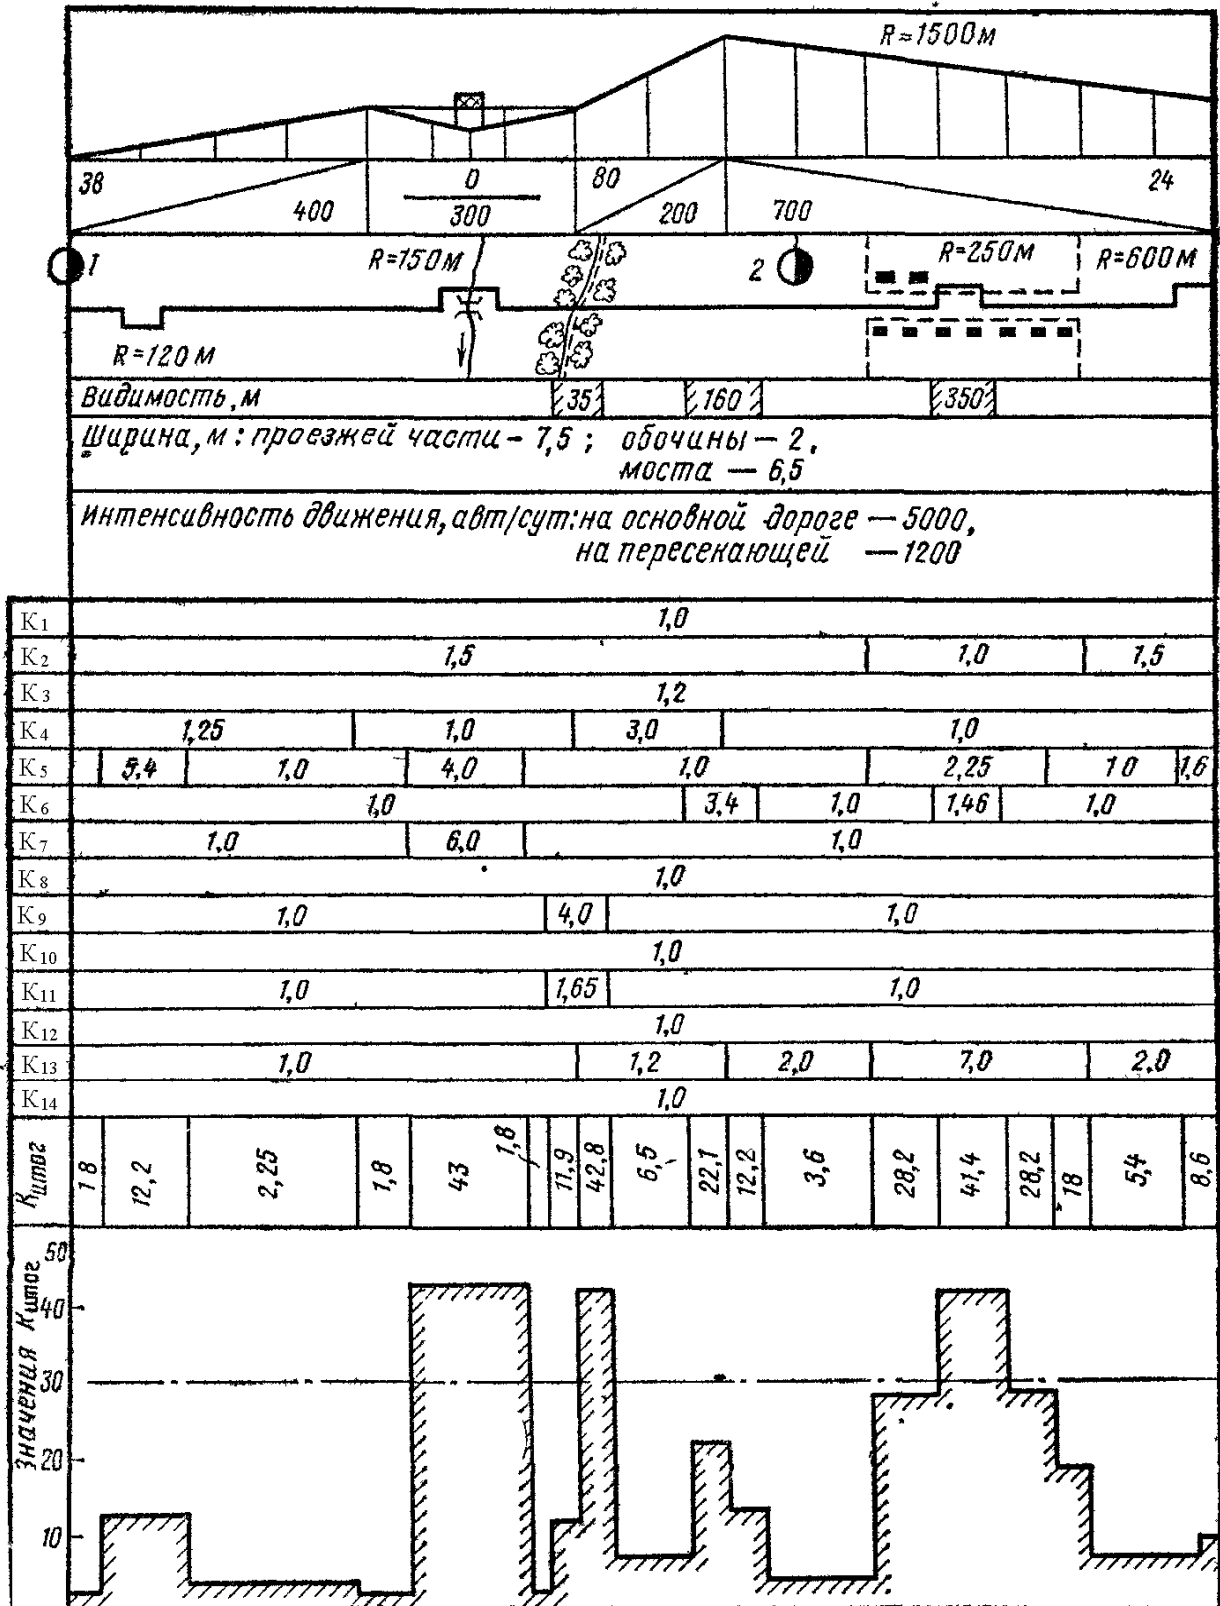 R=1500м
38
400
0
300
80
200
700
24
1
R=150м
2
R=250м
R=600м
R=120м
Видимость,м
35
160
350
Ширина,м: проезжей части - 7,5; обочины — 2,
моста — 6,5
Интенсивность движения, авт/сут: на основной дороге — 5000,
на пересекающей — 1200
К1 1,0
К2 1,5 1,0 1,5
К3 1,2
К4 1,25 1,0 3,0 1,0
К5 5,4 1,0 4,0 1,0 2,25 1 0 1,6
К6 1,0 3,4 1,0 1,46 1,0
К7 1,0 6,0 1,0
К8 1,0
К9 1,0 4,0 1,0
К10 1,0
К11 1,0 1,65 1,0
К12 1,0
К13 1,0 1,2 2,0 7,0 2.0
К14 1,0
Китог 1 8 12,2 2,25 1,8 43 1,8 11,9 42,8 6,5 22,1 12,2 3,6 28,2 41,4 28,2 18 5,4 8,6
Значения Китог
50
40
30
20
10